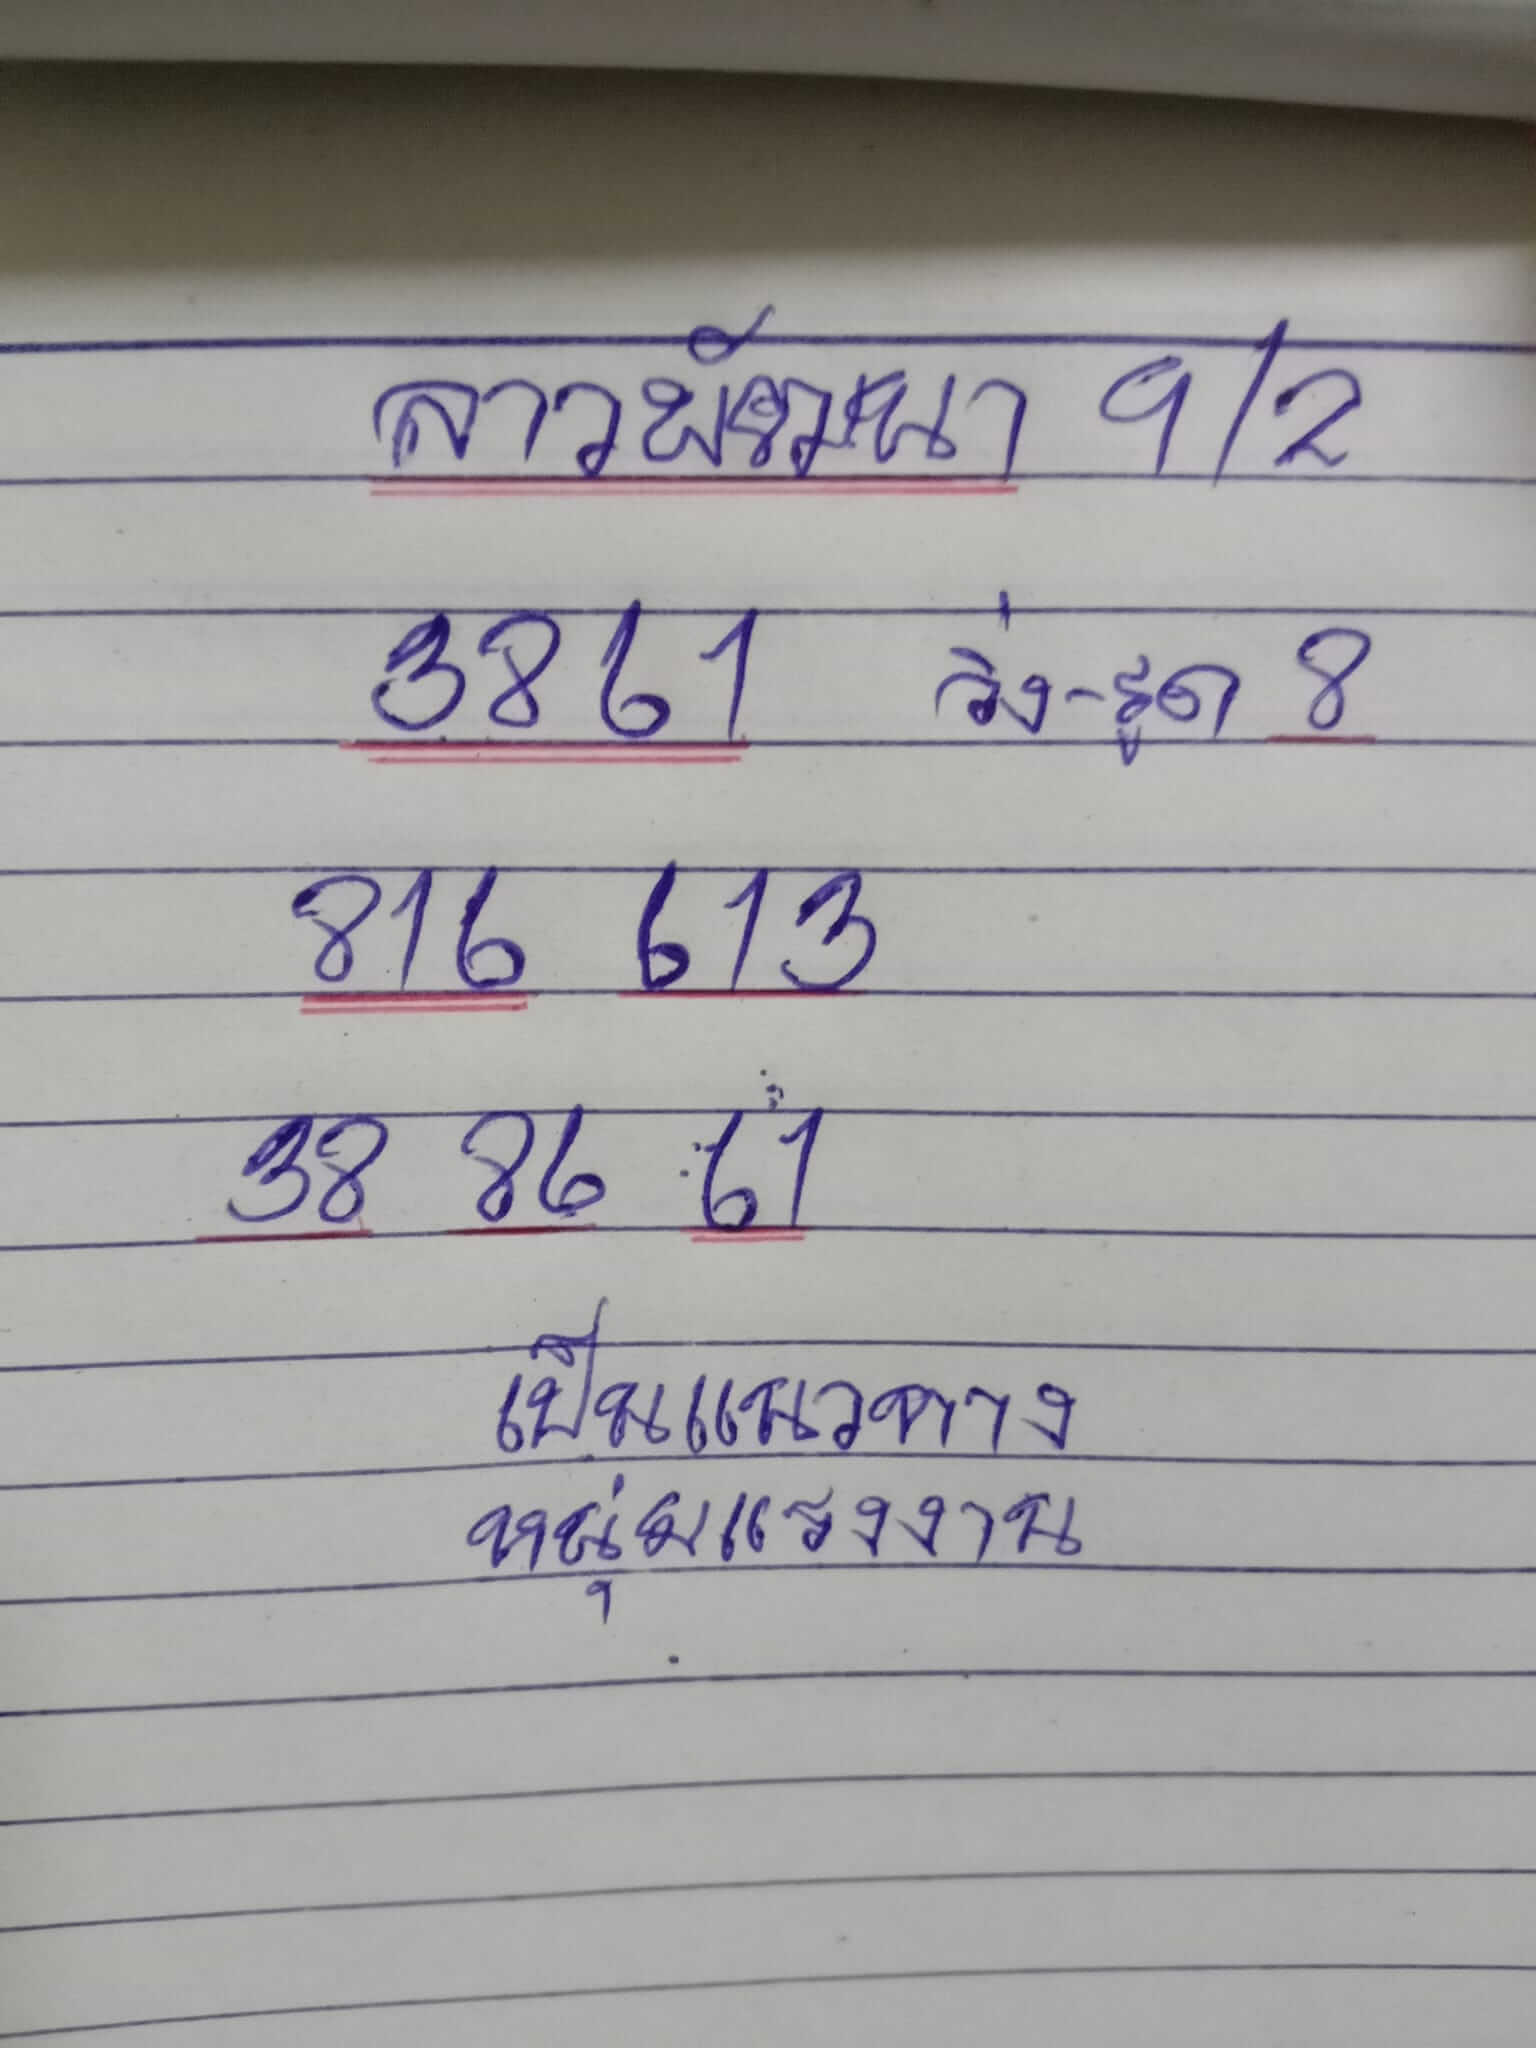 ลาวพัฒนา 9/2
3861 วิ่ง-รูด 8
816 613
38 86 61
เป็นแนวทาง
หนุ่มแรงงาน